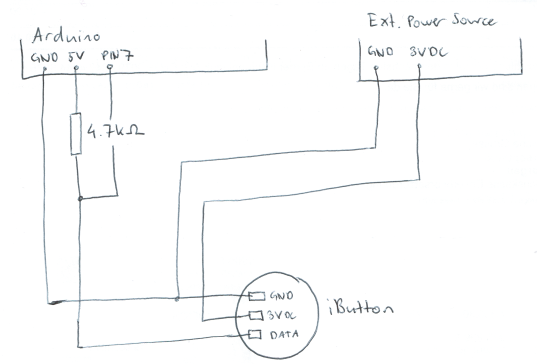 Arduino
GND 5V PIN7
4.7kΩ
Ext. Power Source
GND 3VDC
GND
3VDC
DATA
iButton